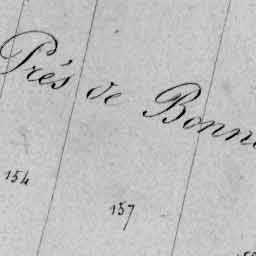 Prés de Bonn
154
157